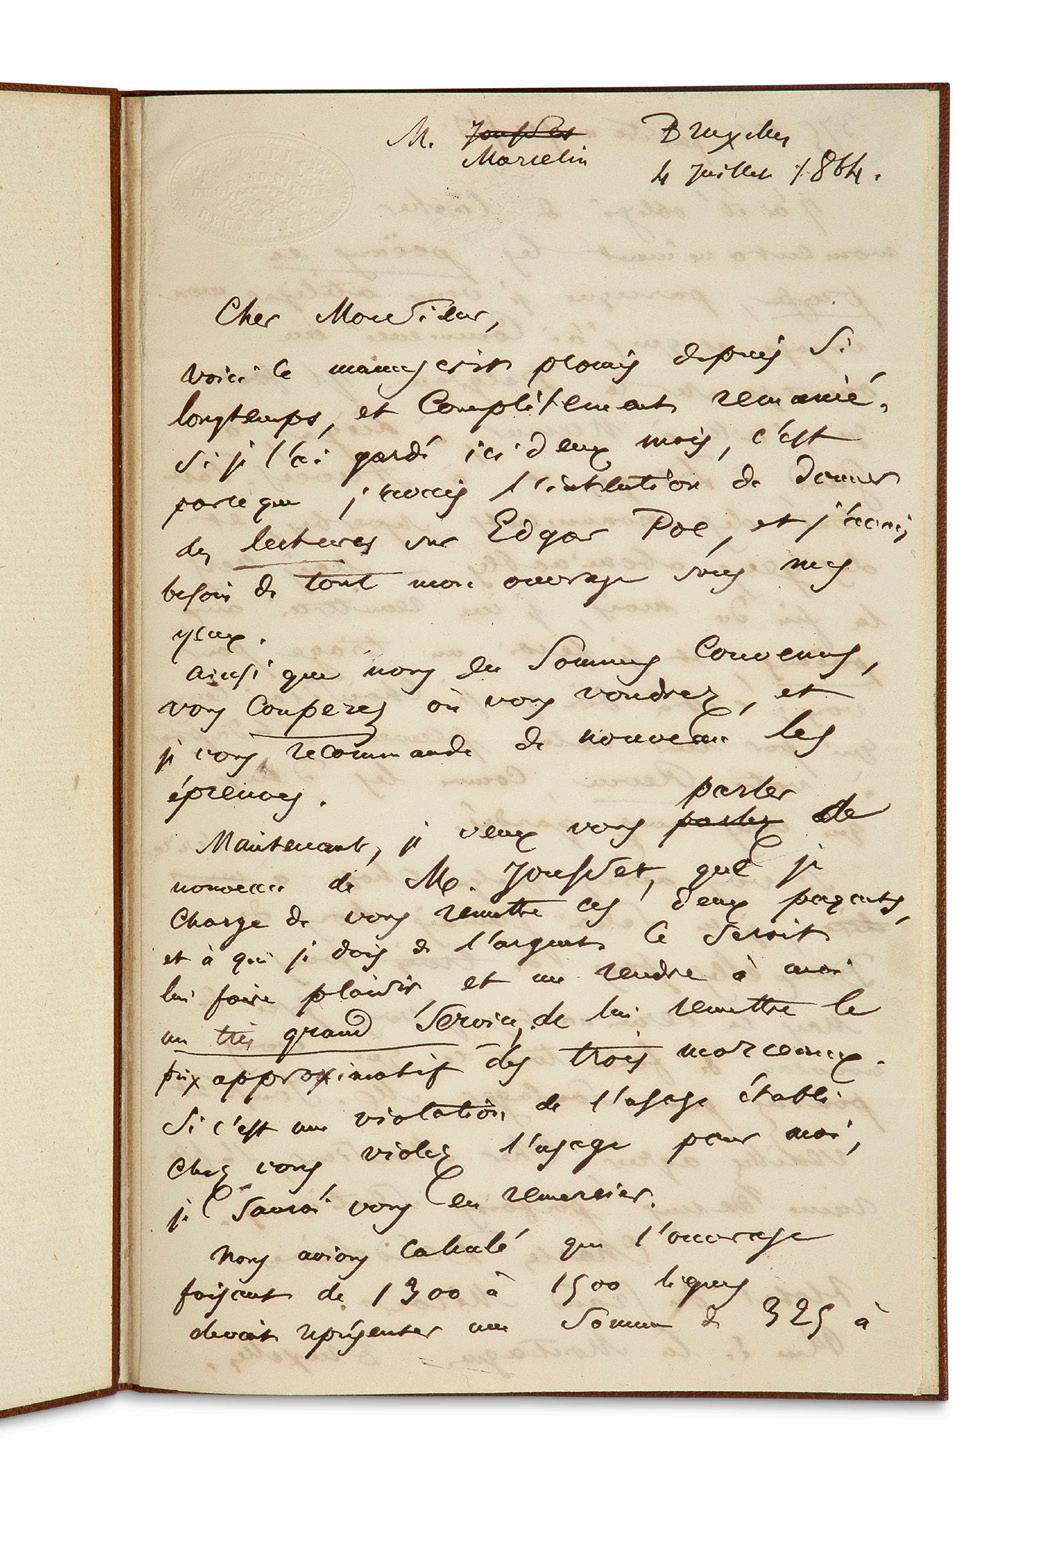 M. Jousset Bruxelles
Marcelin 4 Juillet 1864.
Cher Monsieur,
voici le manuscrit promis depuis si
longtemps, et complètement remanié.
Si je l'ai gardé ici deux mois, c'est
parce que j'avais l'intention de donner
des lectures sur Edgar Poe, et j'avais
besoin de tout mon ouvrage sous mes
yeux.
Ainsi que nous en sommes convenus,
vous couperez où vous voudrez, et
je vous recommande de nouveau les
épreuves.
parler
Maintenant, je veux vous parlez de
nouveau de M. Jousset, que je
charge de vous remettre ces deux paquets,
et à qui je dois de l'argent. Ce serait
lui faire plaisir et me rendre à moi
un très grand service, de lui remettre le
prix approximatif des trois morceaux.
Si c'est une violation de l'usage établi
chez vous violez l'usage pour moi,
je saurai vous en remercier.
Nous avions calculé que l'ouvrage
faisant de 1300 à 1500 lignes
devait représenter une somme de 325 à